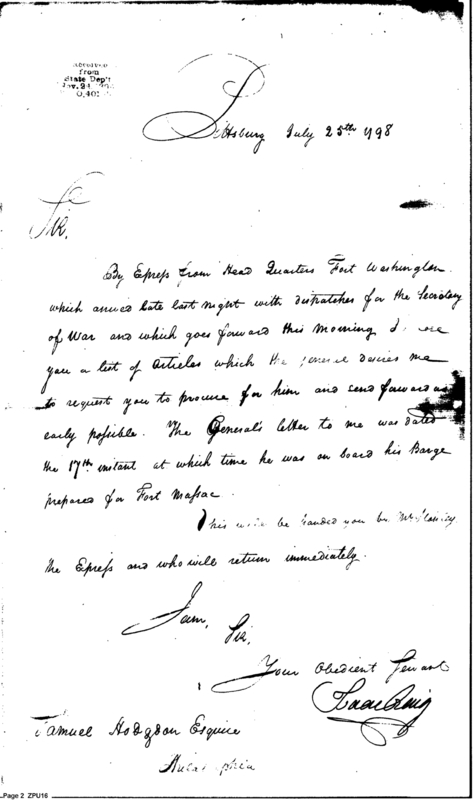 Received
from
State Dep't
Pittsburg July 25th 1798
Sir.
By Express from Head Quarters Fort Washington
which arrived late last night with dispatches for the Secretary
of War and which goes forward this morning I
you a list of Articles which the general desires me
to request you to procure for him and send forward as
early possible. The General's letter to me was dated
the 17th instant at which time he was on board his Barge
prepared for Fort Massac.
This will be handed you by Mr
the Express and who will return immediately.
I am,
Sir,
Your Obedient Servant
Isaac Craig
Samuel Hodgdon Esquire
Philadelphia
Page 2 ZPU16